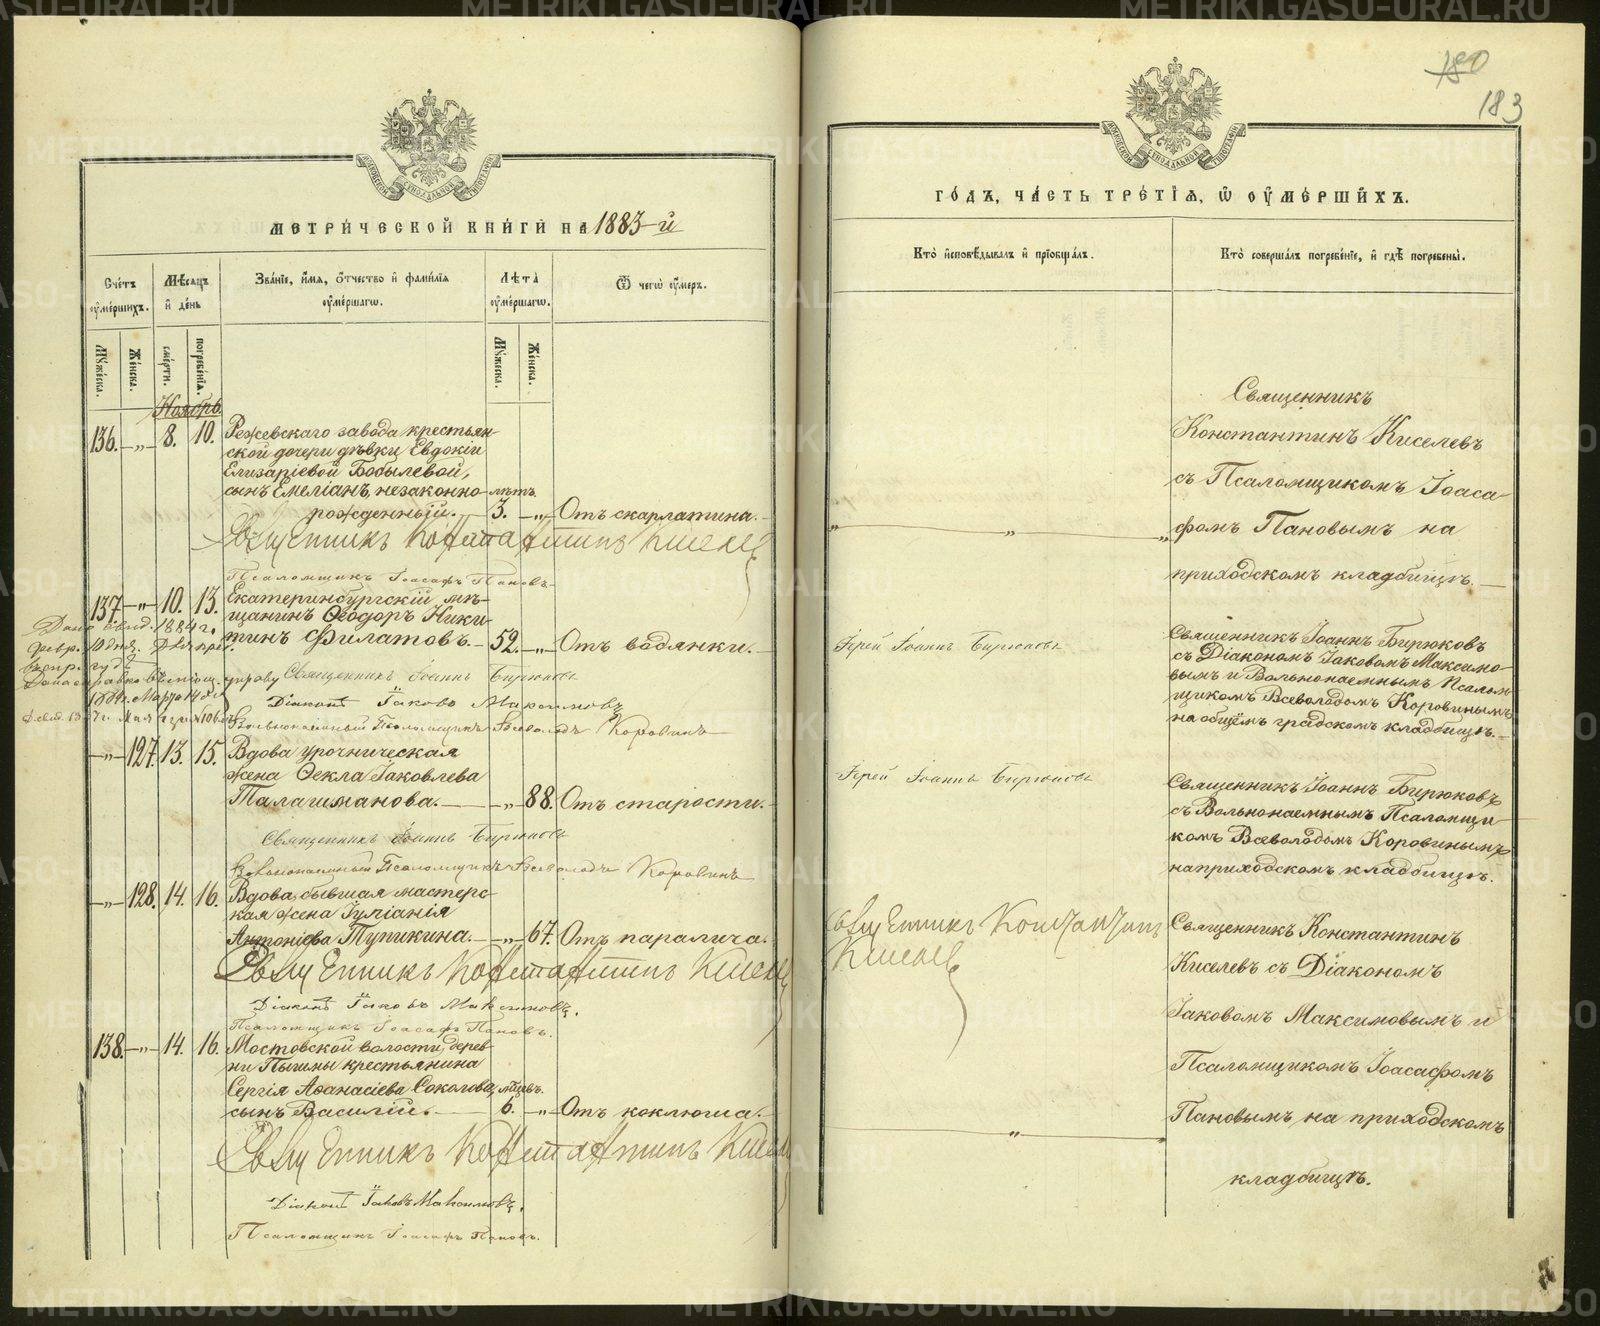 180
183
МЕТРИЧЕСКОЙ КНИГИ НА 1883-й
Счетъ умершихъ.
Мѣсяцъ и день
Званіе, имя, отчество и фамилія умершаго.
Лѣта умершаго.
Ѿ чего умеръ.
Мужеска.
Женска.
смерти.
погребенія.
Мужеска.
Женска.
Ноябрь.
136. — „ — 8. 10. Режевскаго завода крестьян-
ской дочери дѣвки Евдокіи
Елизаріевой Бобылевой,
сынъ Емеліанъ, незаконно- лѣтъ
рожденный. — 3. — „ — Отъ скарлатина. —
Священникъ Константинъ Киселевъ
Псаломщикъ Іоасафъ Пановъ.
137. — „ — 10. 13. Екатеринбургскій мѣ-
щанинъ Ѳеодоръ Ники-
тинъ Филатовъ. — 52. — „ — Отъ водянки. —
Священникъ Іоаннъ Бирюковъ
Діаконъ Іаковъ Максимовъ
Вольнонаемный Псаломщикъ Всеволодъ Коровинъ
— „ — 127. 13. 15. Вдова урочническая
жена Ѳекла Іаковлева
Талашманова. — „ — 88. Отъ старости. —
Священникъ Іоаннъ Бирюковъ
Вольнонаемный Псаломщикъ Всеволодъ Коровинъ
— „ — 128. 14. 16. Вдова, бывшая мастерс-
кая жена Іуліанія
Антоніева Тупикина. — „ — 67. Отъ паралича.
Священникъ Константинъ Киселевъ
Діаконъ Іаковъ Максимовъ.
Псаломщикъ Іоасафъ Пановъ.
138. — „ — 14. 16. Мостовской волости, дерев-
ни Пышмы крестьянина
Сергія Аѳанасіева Соколова, мѣсяцъ.
сынъ Василій. — 6. — „ — Отъ коклюша. —
Священникъ Константинъ Киселевъ
Діаконъ Іаковъ Максимовъ.
Псаломщикъ Іоасафъ Пановъ.
ГОДЪ, ЧАСТЬ ТРЕТІЯ, Ѿ УМЕРШИХЪ.
Кто исповѣдывалъ и пріобщалъ.
Кто совершалъ погребеніе, и гдѣ погребены.
Священникъ
Константинъ Киселевъ
съ Псаломщикомъ Іоаса-
фомъ Пановымъ на
приходскомъ кладбищѣ. —
Іерей Іоаннъ Бирюковъ
Священникъ Іоаннъ Бирюковъ
съ Діакономъ Іаковомъ Максимо-
вымъ и Вольнонаемнымъ Псалом-
щикомъ Всеволодомъ Коровинымъ
на общемъ градскомъ кладбищѣ. —
Іерей Іоаннъ Бирюковъ
Священникъ Іоаннъ Бирюковъ
съ Вольнонаемнымъ Псаломщи-
комъ Всеволодомъ Коровинымъ
на приходскомъ кладбищѣ.
Священникъ Константинъ
Киселевъ
Священникъ Константинъ
Киселевъ съ Діакономъ
Іаковомъ Максимовымъ и
Псаломщикомъ Іоасафомъ
Пановымъ на приходскомъ
кладбищѣ.
METRIKI.GASO-URAL.RU